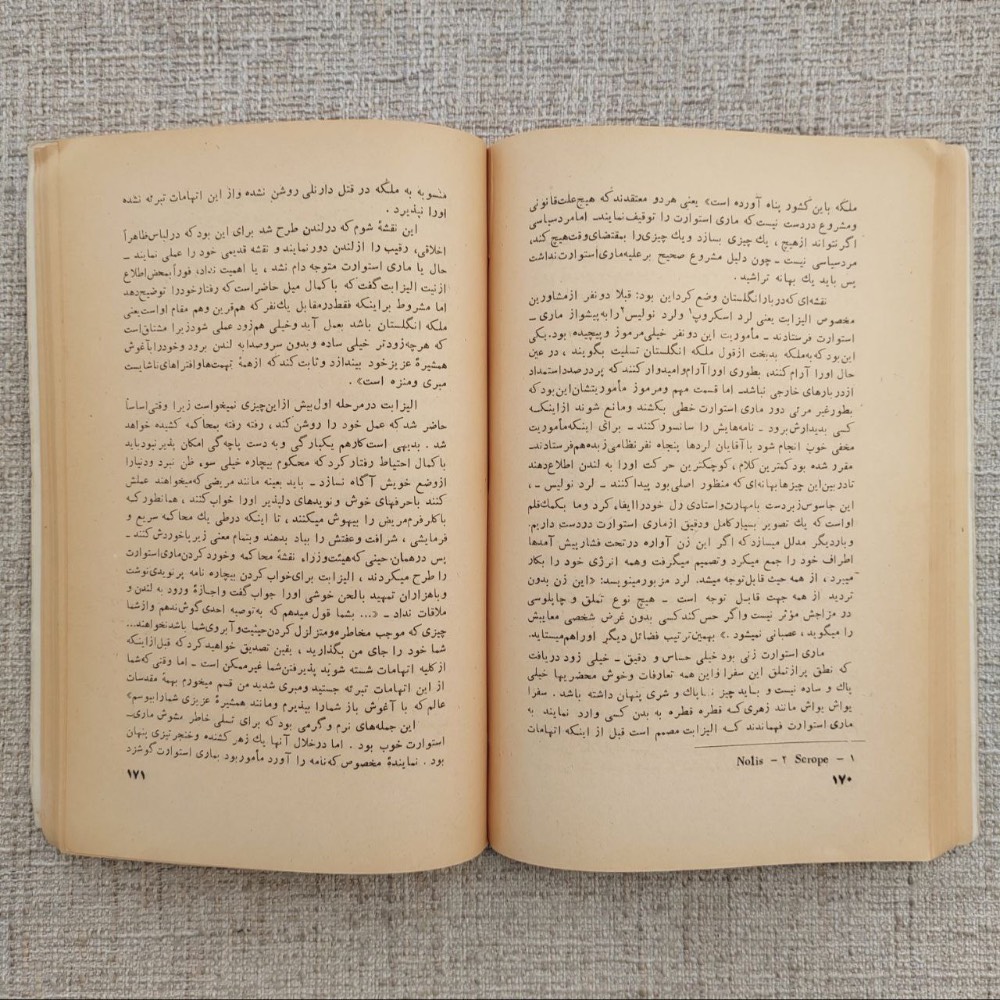 ملکه باین کشور پناه آورده است» یعنی هر دو معتقدند که هیچ علت قانونی
ومشروع در دست نیست که ماری استوارت را توقیف نمایند_ اما مرد سیاسی
اگر نتواند از هیچ، یک چیزی بسازد و یک چیزی را بمقتضای وقت هیچ کند،
مرد سیاسی نیست _ چون دلیل مشروع صحیح بر علیه ماری استوارت نداشت
پس باید یک بهانه تراشید.
نقشه‌ای که دربار انگلستان وضع کرد این بود: قبلا دو نفر از مشاورین
مخصوص الیزابت یعنی لرد اسکروپ۱ و لرد نولیس۲ را به پیشواز ماری _
استوارت فرستادند _ مأموریت این دو نفر خیلی مرموز و پیچیده بود. یکی
این بود که به ملکه بدبخت از قول ملکه انگلستان تسلیت بگویند، در عین
حال اورا آرام کنند، بطوری اورا آرام وامیدوار کنند که پر درصدد استمداد
از دربارهای خارجی نباشد_ اما قسمت مهم ومرموز مأموریتشان این بود که
بطور غیر مرئی دور ماری استوارت خطی بکشند ومانع شوند از اینکه
کسی بدیدارش برود _ نامه‌هایش را سانسور کنند _ برای اینکه مأموریت
مخفی خوب انجام شود با آقایان لردها پنجاه نفر نظامی زبده هم فرستادند_
مقرر شده بود کمترین کلام، کوچکترین حرکت اورا به لندن اطلاع دهند
تا در بین این چیزها بهانه‌ای که منظور اصلی بود پیدا کنند _ لرد نولیس _،
این جاسوس زبردست با مهارت و استادی رل خود را ایفاء کرد وما بکمک قلم
او است که یک تصویر بسیار کامل و دقیق از ماری استوارت در دست داریم.
وباردیگر مدلل میسازد که اگر این زن آواره در تحت فشار پیش آمدها
اطراف خود را جمع میکرد و تصمیم میگرفت وهمه انرژی خود را بکار
میبرد، از همه حیث قابل توجه میشد. لرد مزبور مینویسد: «این زن بدون
تردید از همه جهت قابل توجه است _ هیچ نوع تملق و چاپلوسی
در مزاجش مؤثر نیست واگر حس کند کسی بدون غرض شخصی معایبش
را میگوید، عصبانی نمیشود.» بهمین ترتیب فضائل دیگر اورا هم میستاید.
ماری استوارت زنی بود خیلی حساس و دقیق _ خیلی زود دریافت
که نطق پر از تملق این سفرا و این همه تعارفات وخوش محضریها خیلی
پاك و ساده نیست و باید چیز ناپاك و شری پنهان داشته باشد. سفرا
یواش یواش مانند زهری که قطره قطره به بدن کسی وارد نمایند به
ماری استوارت فهماندند که الیزابت مصمم است قبل از اینکه اتهامات
۱ - Scrope ۲ - Nolis
۱۷۰
منسوبه به ملکه در قتل دارنلی روشن نشده واز این اتهامات تبرئه نشده
اورا نپذیرد.
این نقشهٔ شوم که در لندن طرح شد برای این بود که در لباس ظاهراً
اخلاقی، رقیب را از لندن دور نمایند و نقشه قدیمی خود را عملی نمایند _
حال یا ماری استوارت متوجه دام نشد، یا اهمیت نداد، فوراً بمحض اطلاع
از نیت الیزابت گفت که با کمال میل حاضر است که رفتار خود را توضیح دهد
اما مشروط بر اینکه فقط در مقابل یک نفر که هم قرین وهم مقام اوست یعنی
ملکه انگلستان باشد بعمل آید وخیلی هم زود عملی شود زیرا مشتاق است
که هر چه زودتر خیلی ساده وبدون سروصدا به لندن برود وخود را بآغوش
همشیرهٔ عزیز خود بیندازد و ثابت کند که از همهٔ تهمت‌ها و افتراهای ناشایست
مبری ومنزه است».
الیزابت در مرحله اول بیش از این چیزی نمیخواست زیرا وقتی اساساً
حاضر شد که عمل خود را روشن کند، رفته رفته بمحاکمه کشیده خواهد
شد. بدیهی است کار هم یکبارگی و به دست پاچه‌گی امکان پذیر نبود باید
با کمال احتیاط رفتار کرد که محکوم بیچاره خیلی سوء ظن نبرد ودنیا را
از وضع خویش آگاه نسازد _ باید بعینه مانند مریضی که میخواهند عملش
کنند با حرفهای خوش و نویدهای دلپذیر اورا خواب کنند، همانطور که
با کلرفرم مریض را بیهوش میکنند، تا اینکه درطی یک محاکمه سریع و
فرمایشی، شرافت و عفتش را بباد بدهند و بتمام معنی زیر پا خوردش کنند _
پس در همان حینی که هیئت وزراء نقشهٔ محاکمه وخورد کردن ماری استوارت
را طرح میکردند، الیزابت برای خواب کردن بیچاره نامه پر نویدی نوشت
و با هزاران تمهید بالحن خوشی اورا جواب گفت و اجازهٔ ورود به لندن و
ملاقات نداد _ «... بشما قول میدهم که به توصیه احدی گوش ندهم و از شما
چیزی که موجب مخاطره ومتزلزل کردن حیثیت و آبروی شما باشد نخواهند...
شما خود را جای من بگذارید، یقین تصدیق خواهید کرد که قبل از اینکه
از کلیه اتهامات شسته شوید پذیرفتن شما غیر ممکن است _ اما وقتی که شما
از این اتهامات تبرئه جستید ومبری شدید من قسم میخورم بهمهٔ مقدسات
عالم که با آغوش باز شما را بپذیرم ومانند همشیرهٔ عزیزی شما را ببوسم»
این جمله‌های نرم و گرمی بود که برای تسلی خاطر مشوش ماری_
استوارت خوب بود. اما در خلال آنها یک زهر کشنده وخنجر تیزی پنهان
بود. نمایندهٔ مخصوص که نامه را آورد مأمور بود بماری استوارت گوشزد
۱۷۱